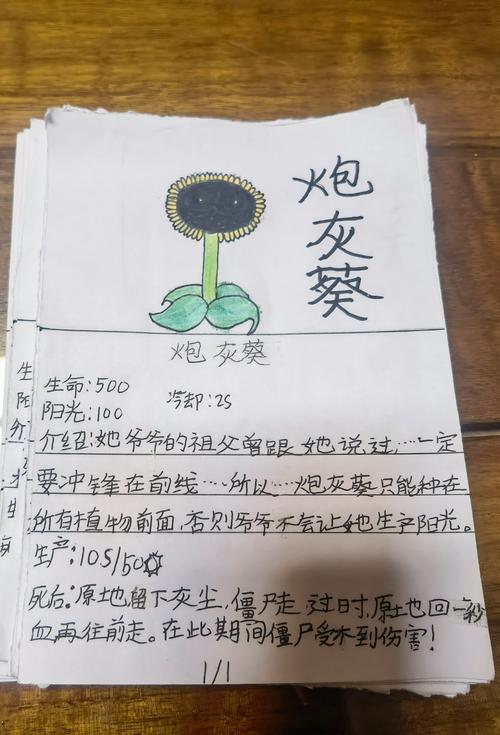 炮
灰
葵
炮灰葵
生命:500
冷却:2S
阳光:100
介绍:她爷爷的祖父曾跟她说过……一定
要冲锋在前线……所以……炮灰葵只能种在
所有植物前面,否则爷爷不会让她生产阳光。
生产:10S/50
死后:原地留下灰尘,僵尸走过时,原地回一秒
血,再往前走。在此期间僵尸受不到伤害!
1/1
生
阳
介